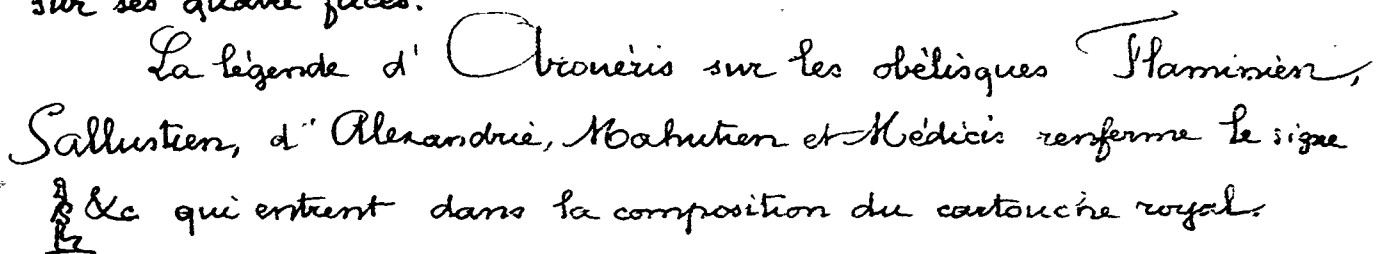 sur ses quatre faces.
La légende d' Arouéris sur les obélisques Flaminien,
Sallustien, d' Alexandrie, Mahutien et Médicis renferme le signe
&c qui entrent dans la composition du cartouche royal.